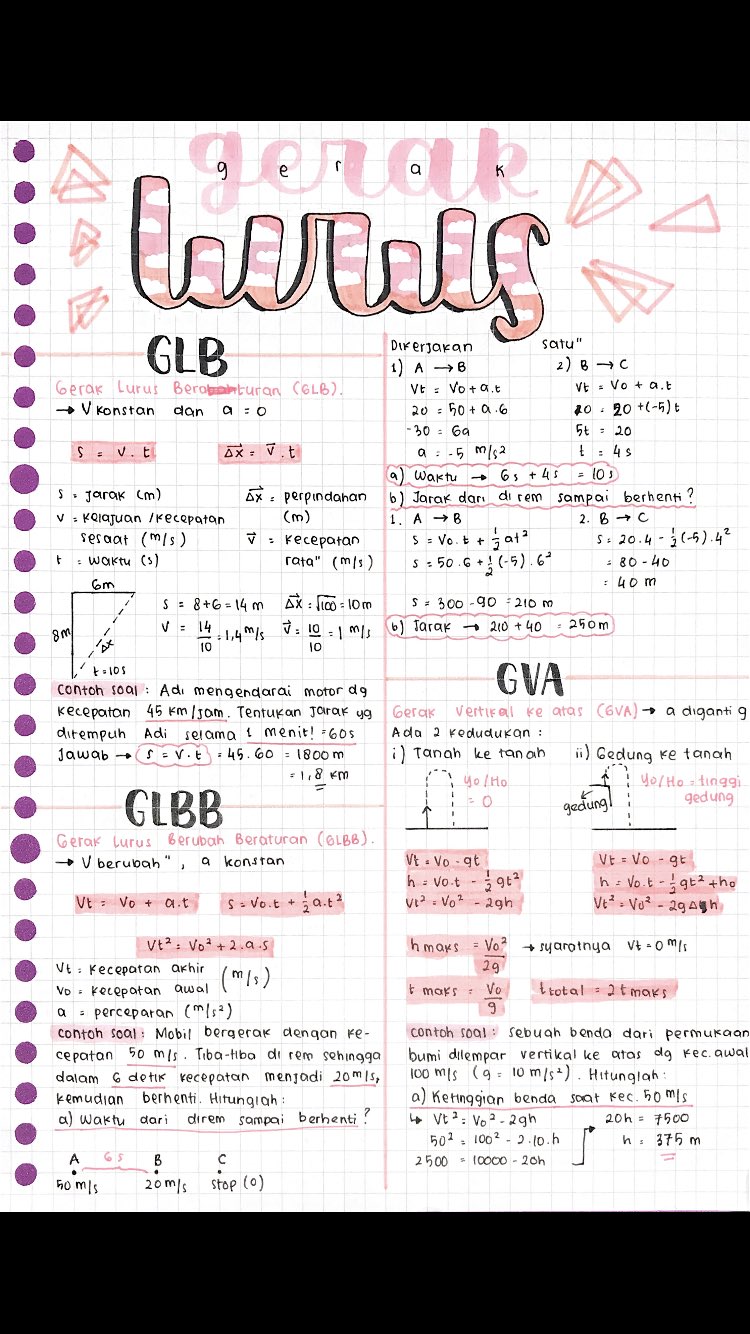 gerak
g e r a k
lurus
GLB
Gerak Lurus Beraturan (GLB).
→ V konstan dan a = 0
s = v . t
Δx = v . t
s = jarak (m)
v = kelajuan /kecepatan
sesaat (m/s)
t = waktu (s)
Δx = perpindahan
(m)
v = kecepatan
rata" (m/s)
6m
8m
Δx
t = 10s
s = 8+6 = 14 m
v = 14/10 = 1,4 m/s
Δx = √100 = 10m
v = 10/10 = 1 m/s
contoh soal : Adi mengendarai motor dg
kecepatan 45 km/jam. Tentukan jarak yg
ditempuh Adi selama 1 menit! = 60s
Jawab → s = v . t = 45.60 = 1800 m
= 1,8 km
GLBB
Gerak Lurus Berubah Beraturan (GLBB).
→ V berubah" , a konstan
Vt = Vo + a.t
s = Vo.t + 1/2 a.t²
Vt² = Vo² + 2.a.s
Vt = kecepatan akhir
Vo = kecepatan awal (m/s)
a = percepatan (m/s²)
contoh soal : Mobil bergerak dengan ke-
cepatan 50 m/s. Tiba-tiba di rem sehingga
dalam 6 detik kecepatan menjadi 20 m/s,
kemudian berhenti. Hitunglah :
a) Waktu dari direm sampai berhenti ?
A 6s B C
50 m/s 20 m/s stop (0)
Dikerjakan satu"
1) A → B
Vt = Vo + a.t
20 = 50 + a.6
-30 = 6a
a = -5 m/s²
2) B → C
Vt = Vo + a.t
20 = 20 + (-5) t
5t = 20
t = 4 s
a) Waktu → 6s + 4s = 10 s
b) Jarak dari di rem sampai berhenti ?
1. A → B
s = Vo.t + 1/2 at²
s = 50.6 + 1/2 (-5).6²
s = 300 - 90 = 210 m
2. B → C
s = 20.4 - 1/2 (-5).4²
= 80 - 40
= 40 m
b) Jarak → 210 + 40 = 250m
GVA
Gerak Vertikal ke atas (GVA) → a diganti g
Ada 2 kedudukan :
i) Tanah ke tanah
Yo/Ho
= 0
ii) Gedung ke tanah
gedung
Yo/Ho = tinggi
gedung
Vt = Vo - gt
h = Vo.t - 1/2 gt²
Vt² = Vo² - 2gh
Vt = Vo - gt
h = Vo.t - 1/2 gt² + ho
Vt² = Vo² - 2gΔh
h maks = Vo²/2g → syaratnya Vt = 0 m/s
t maks = Vo/g
t total = 2 t maks
contoh soal : sebuah benda dari permukaan
bumi dilempar vertikal ke atas dg kec. awal
100 m/s (g = 10 m/s²). Hitunglah :
a) Ketinggian benda saat kec. 50 m/s
↳ Vt² = Vo² - 2gh
50² = 100² - 2.10.h
2500 = 10000 - 20h
20h = 7500
h = 375 m